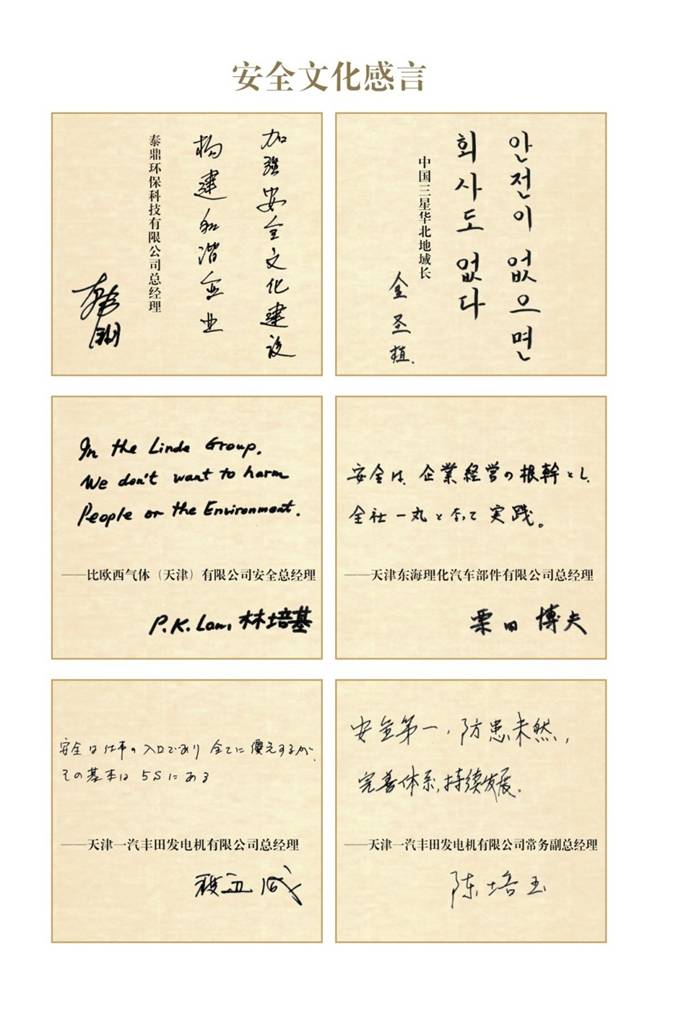 安全文化感言
加强安全文化建设
构建和谐企业
泰鼎环保科技有限公司总经理
안전이 없으면
회사도 없다
中国三星华北地域长
金圣植
In the Linde Group,
We don't want to harm
People or the Environment.
——比欧西气体（天津）有限公司安全总经理
P.K.Lam, 林培基
安全は、企業経営の根幹とし、
全社一丸となって実践。
——天津东海理化汽车部件有限公司总经理
栗田 博夫
安全は仕事の入口であり 全てに優先するが、
その基本は 5Sにある
——天津一汽丰田发电机有限公司总经理
安全第一，防患未然，
完善体系，持续发展。
——天津一汽丰田发电机有限公司常务副总经理
陈培玉